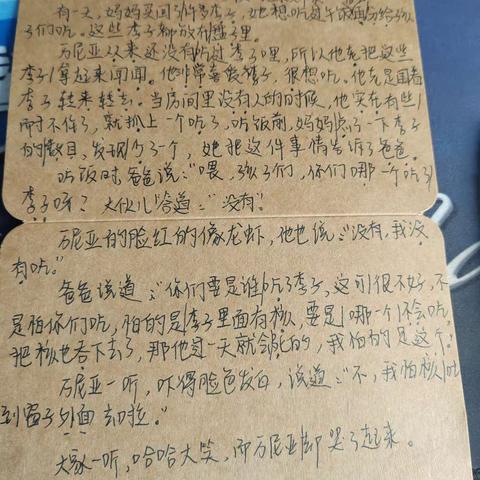 有一天，妈妈买回了许多李子，她想吃过午饭再分给孩
子们吃。这些李子都放在盘子里。
万尼亚从来还没有吃过李子哩，所以他老把这些
李子拿起来闻闻。他非常喜欢李子，很想吃。他老是围着
李子转来转去。当房间里没有人的时候，他实在有些
耐不住了，就抓上一个吃了，吃饭前，妈妈点了一下李子
的数目，发现少了一个，她把这件事情告诉了爸爸。
吃饭时，爸爸说：“喂，孩子们，你们哪一个吃了
李子呀？大伙儿答道：“没有！
万尼亚的脸红的像龙虾，他也说：“没有，我没
有吃。”
爸爸说道：“你们要是谁吃了李子，这可很不好，不
是怕你们吃，怕的是李子里面有核，要是哪一个不会吃，
把核也吞下去了，那他过一天就会死的，我怕的是这个。
万尼亚一听，吓得脸色发白，说道：“不，我怕核吐
到窗子外面去啦。”
大家一听，哈哈大笑，而万尼亚却哭了起来。